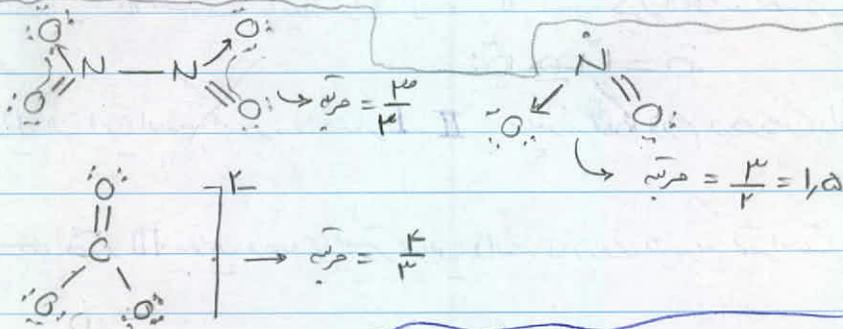 O O
N — N
O O → مرتبه = ۳/۲
N
O O
→ مرتبه = ۳/۲ = ۱,۵
O ۲−
C → مرتبه = ۴/۳
O O